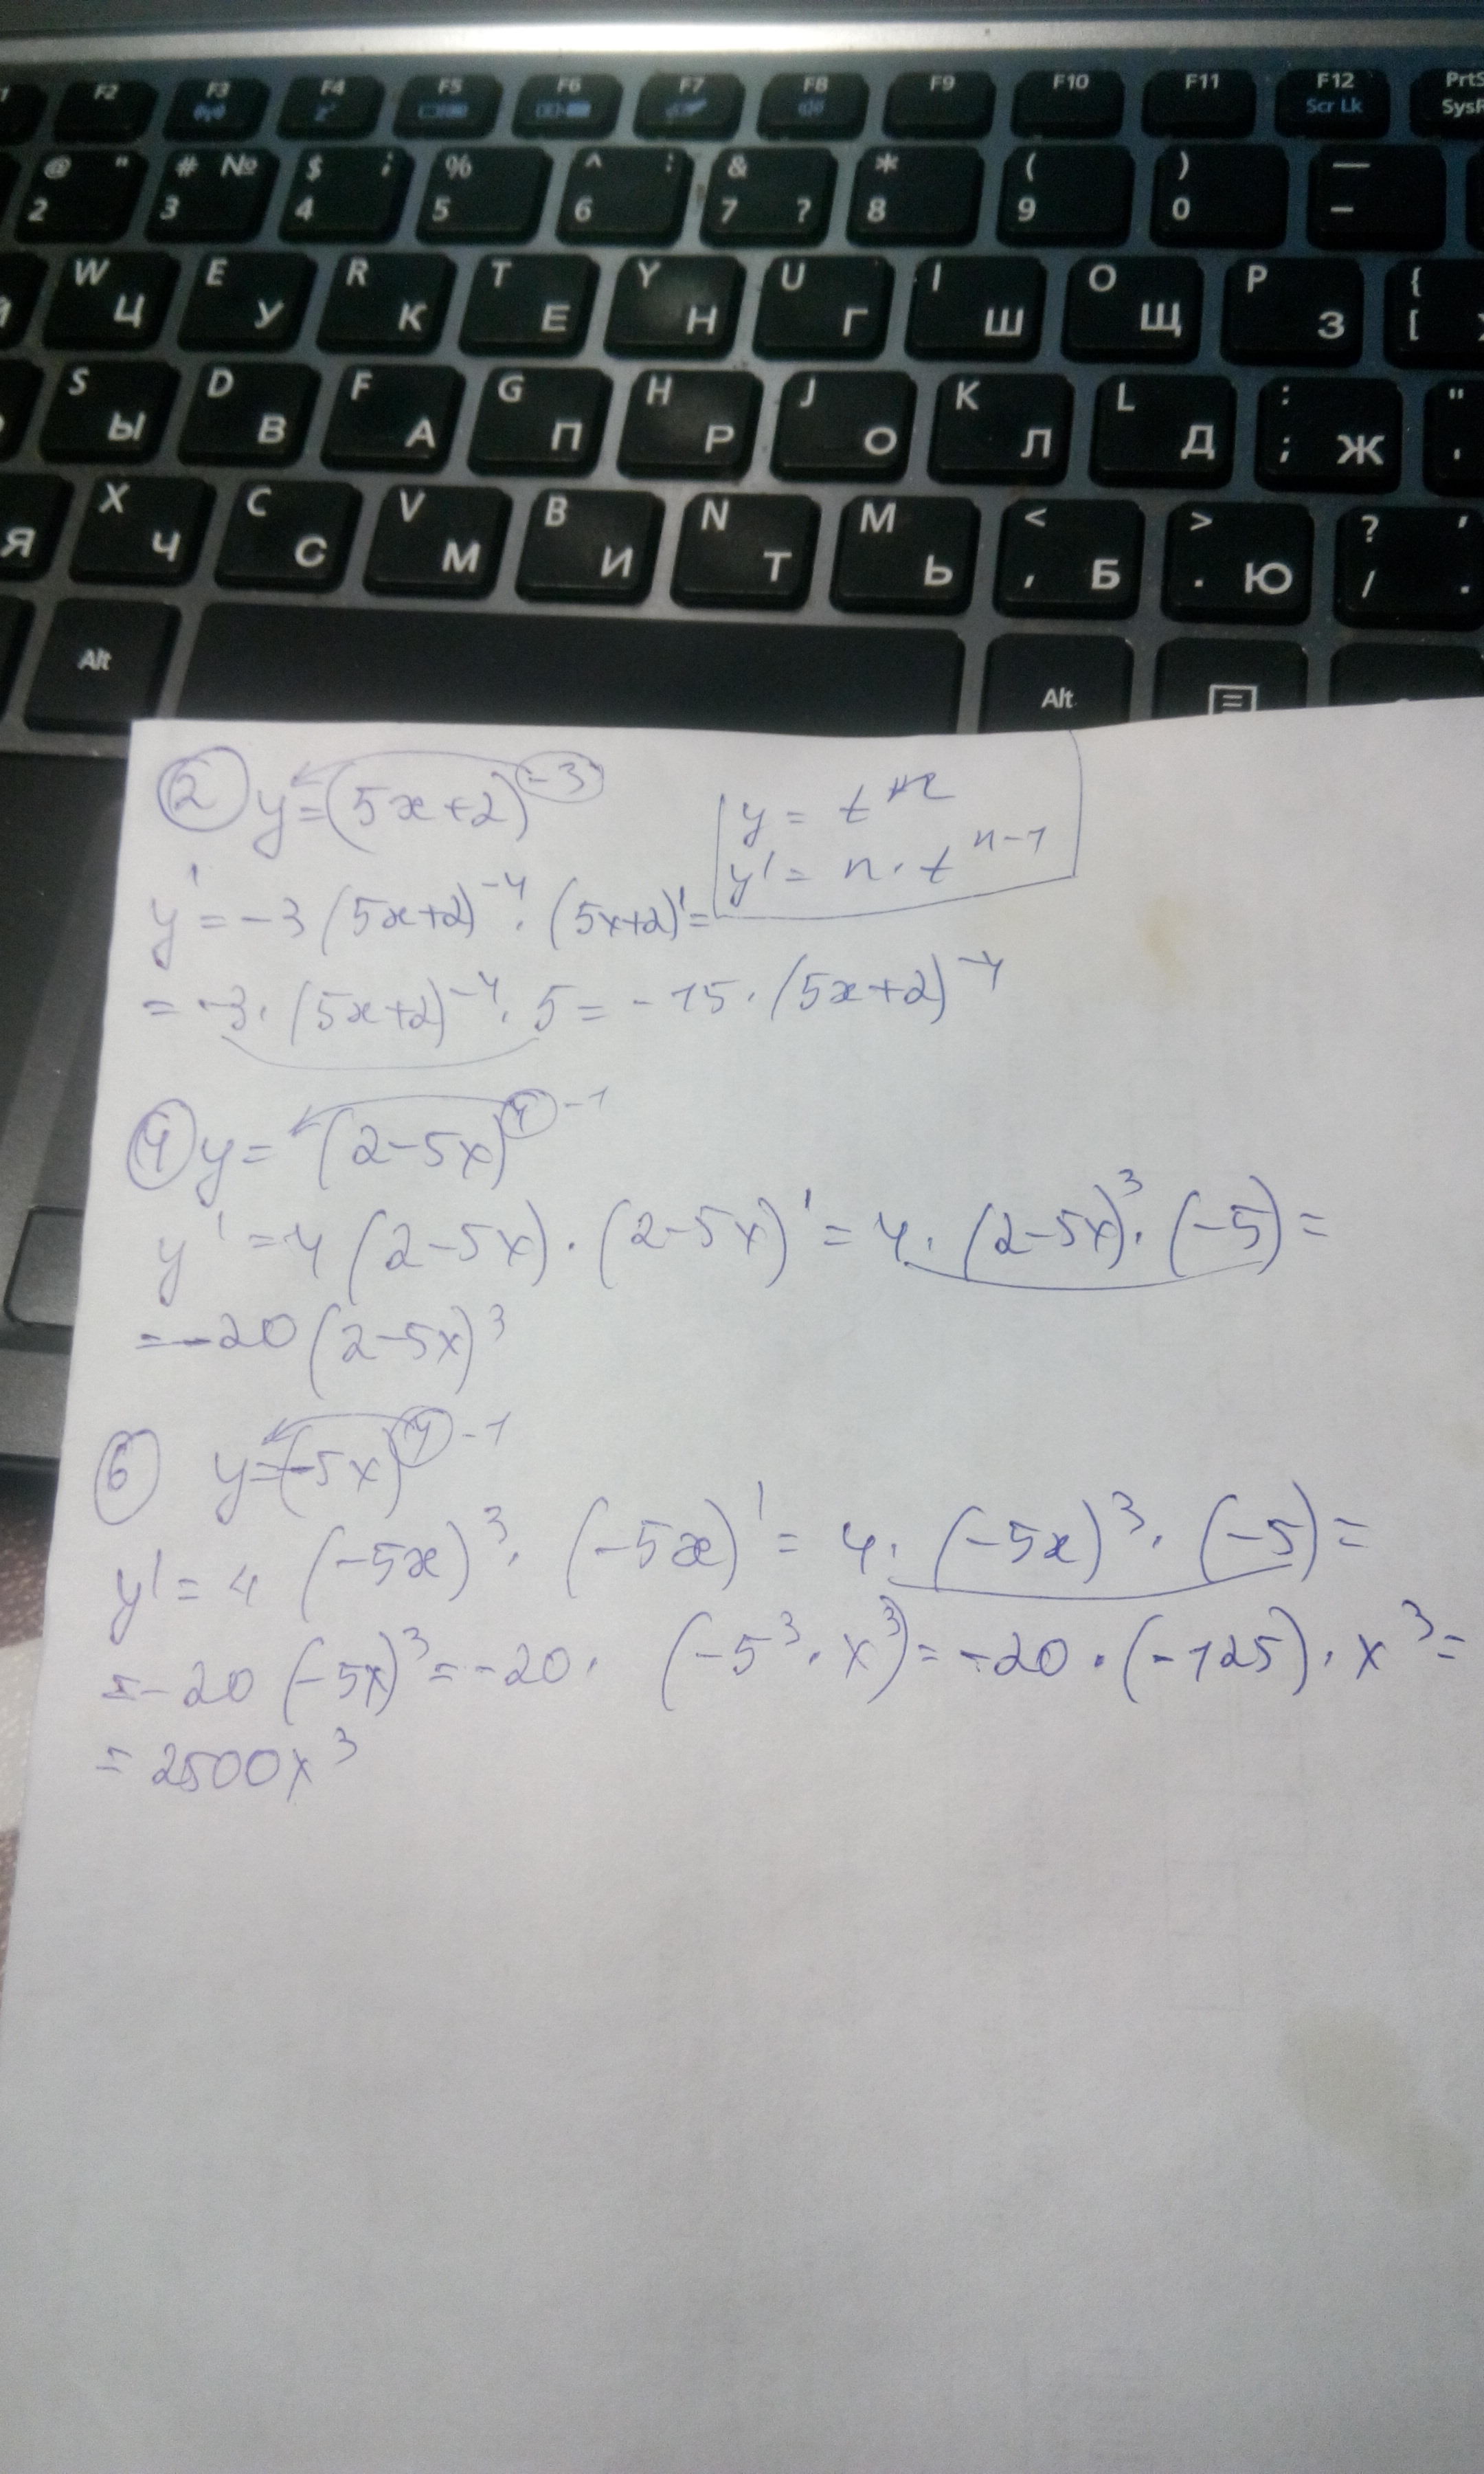 F2 F3 F4 F5 F6 F7 F8 F9 F10 F11 F12 Scr Lk PrtS SysR
@ " 2 # № 3 $ ; 4 % 5 ^ : 6 & 7 ? * 8 ( 9 ) 0 — –
W Ц E У R К T Е Y Н U Г I Ш O Щ P З { [
S Ы D В F А G П H Р J О K Л L Д : ; Ж " '
Я X Ч C С V М B И N Т M Ь < , Б > . Ю ? / , .
Alt Alt
② y=(5x+2)⁻³
y = tⁿ
y' = n · tⁿ⁻¹
y' = -3 (5x+2)⁻⁴ · (5x+2)' =
= -3 · (5x+2)⁻⁴ · 5 = -15 · (5x+2)⁻⁴
④ y = (2-5x)⁴⁻¹
y' = 4 (2-5x) · (2-5x)' = 4 · (2-5x)³ · (-5) =
= -20 (2-5x)³
⑥ y=(-5x)⁴⁻¹
y' = 4 (-5x)³ · (-5x)' = 4 · (-5x)³ · (-5) =
= -20 (-5x)³ = -20 · (-5³ · x³) = -20 · (-125) · x³ =
= 2500x³